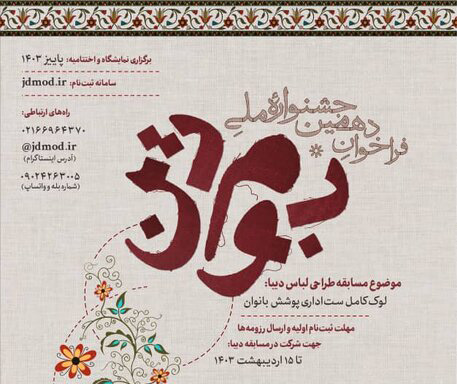 فراخوانِ
دهمین
جشنوارهٔ ملیِ
بوم‌وتن
برگزاری نمایشگاه و اختتامیه: پاییز ۱۴۰۳
سامانه ثبت‌نام: jdmod.ir
راه‌های ارتباطی:
۰۲۱۶۶۹۶۴۳۷۰
@jdmod.ir
(آدرس اینستاگرام)
۰۹۰۲۴۲۶۳۰۰۵
(شماره بله و واتساپ)
موضوع مسابقه طراحی لباس دیبا:
لوک کامل ست اداری پوشش بانوان
مهلت ثبت‌نام اولیه و ارسال رزومه‌ها
جهت شرکت در مسابقه دیبا:
تا ۱۵ اردیبهشت ۱۴۰۳